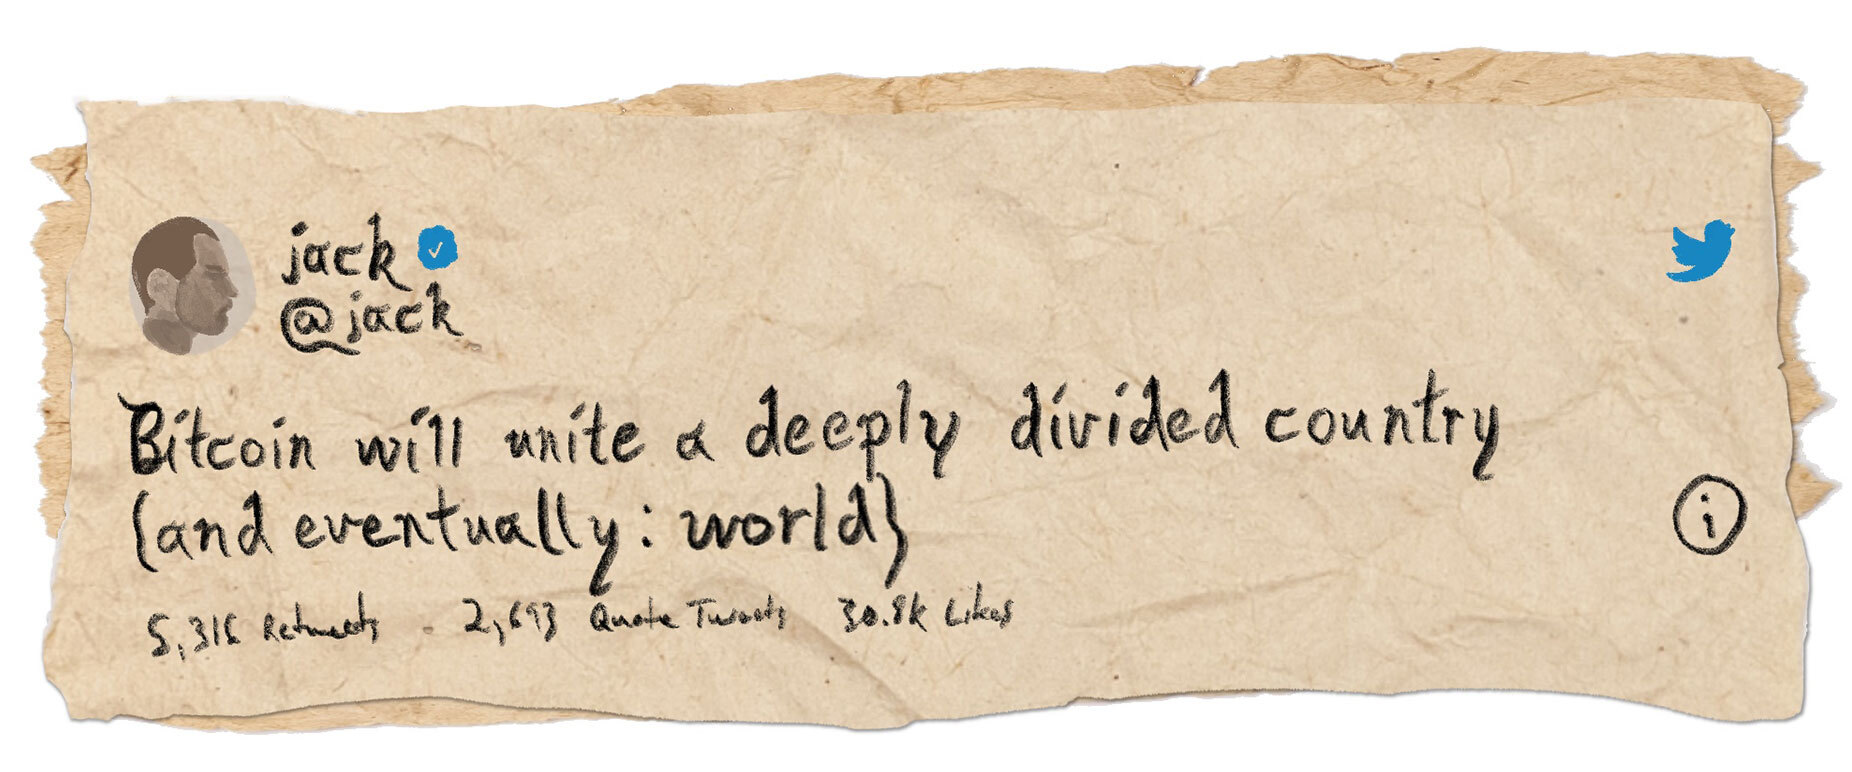 jack
@jack
Bitcoin will unite a deeply divided country
(and eventually: world)
5,316 Retweets 2,693 Quote Tweets 30.8k Likes